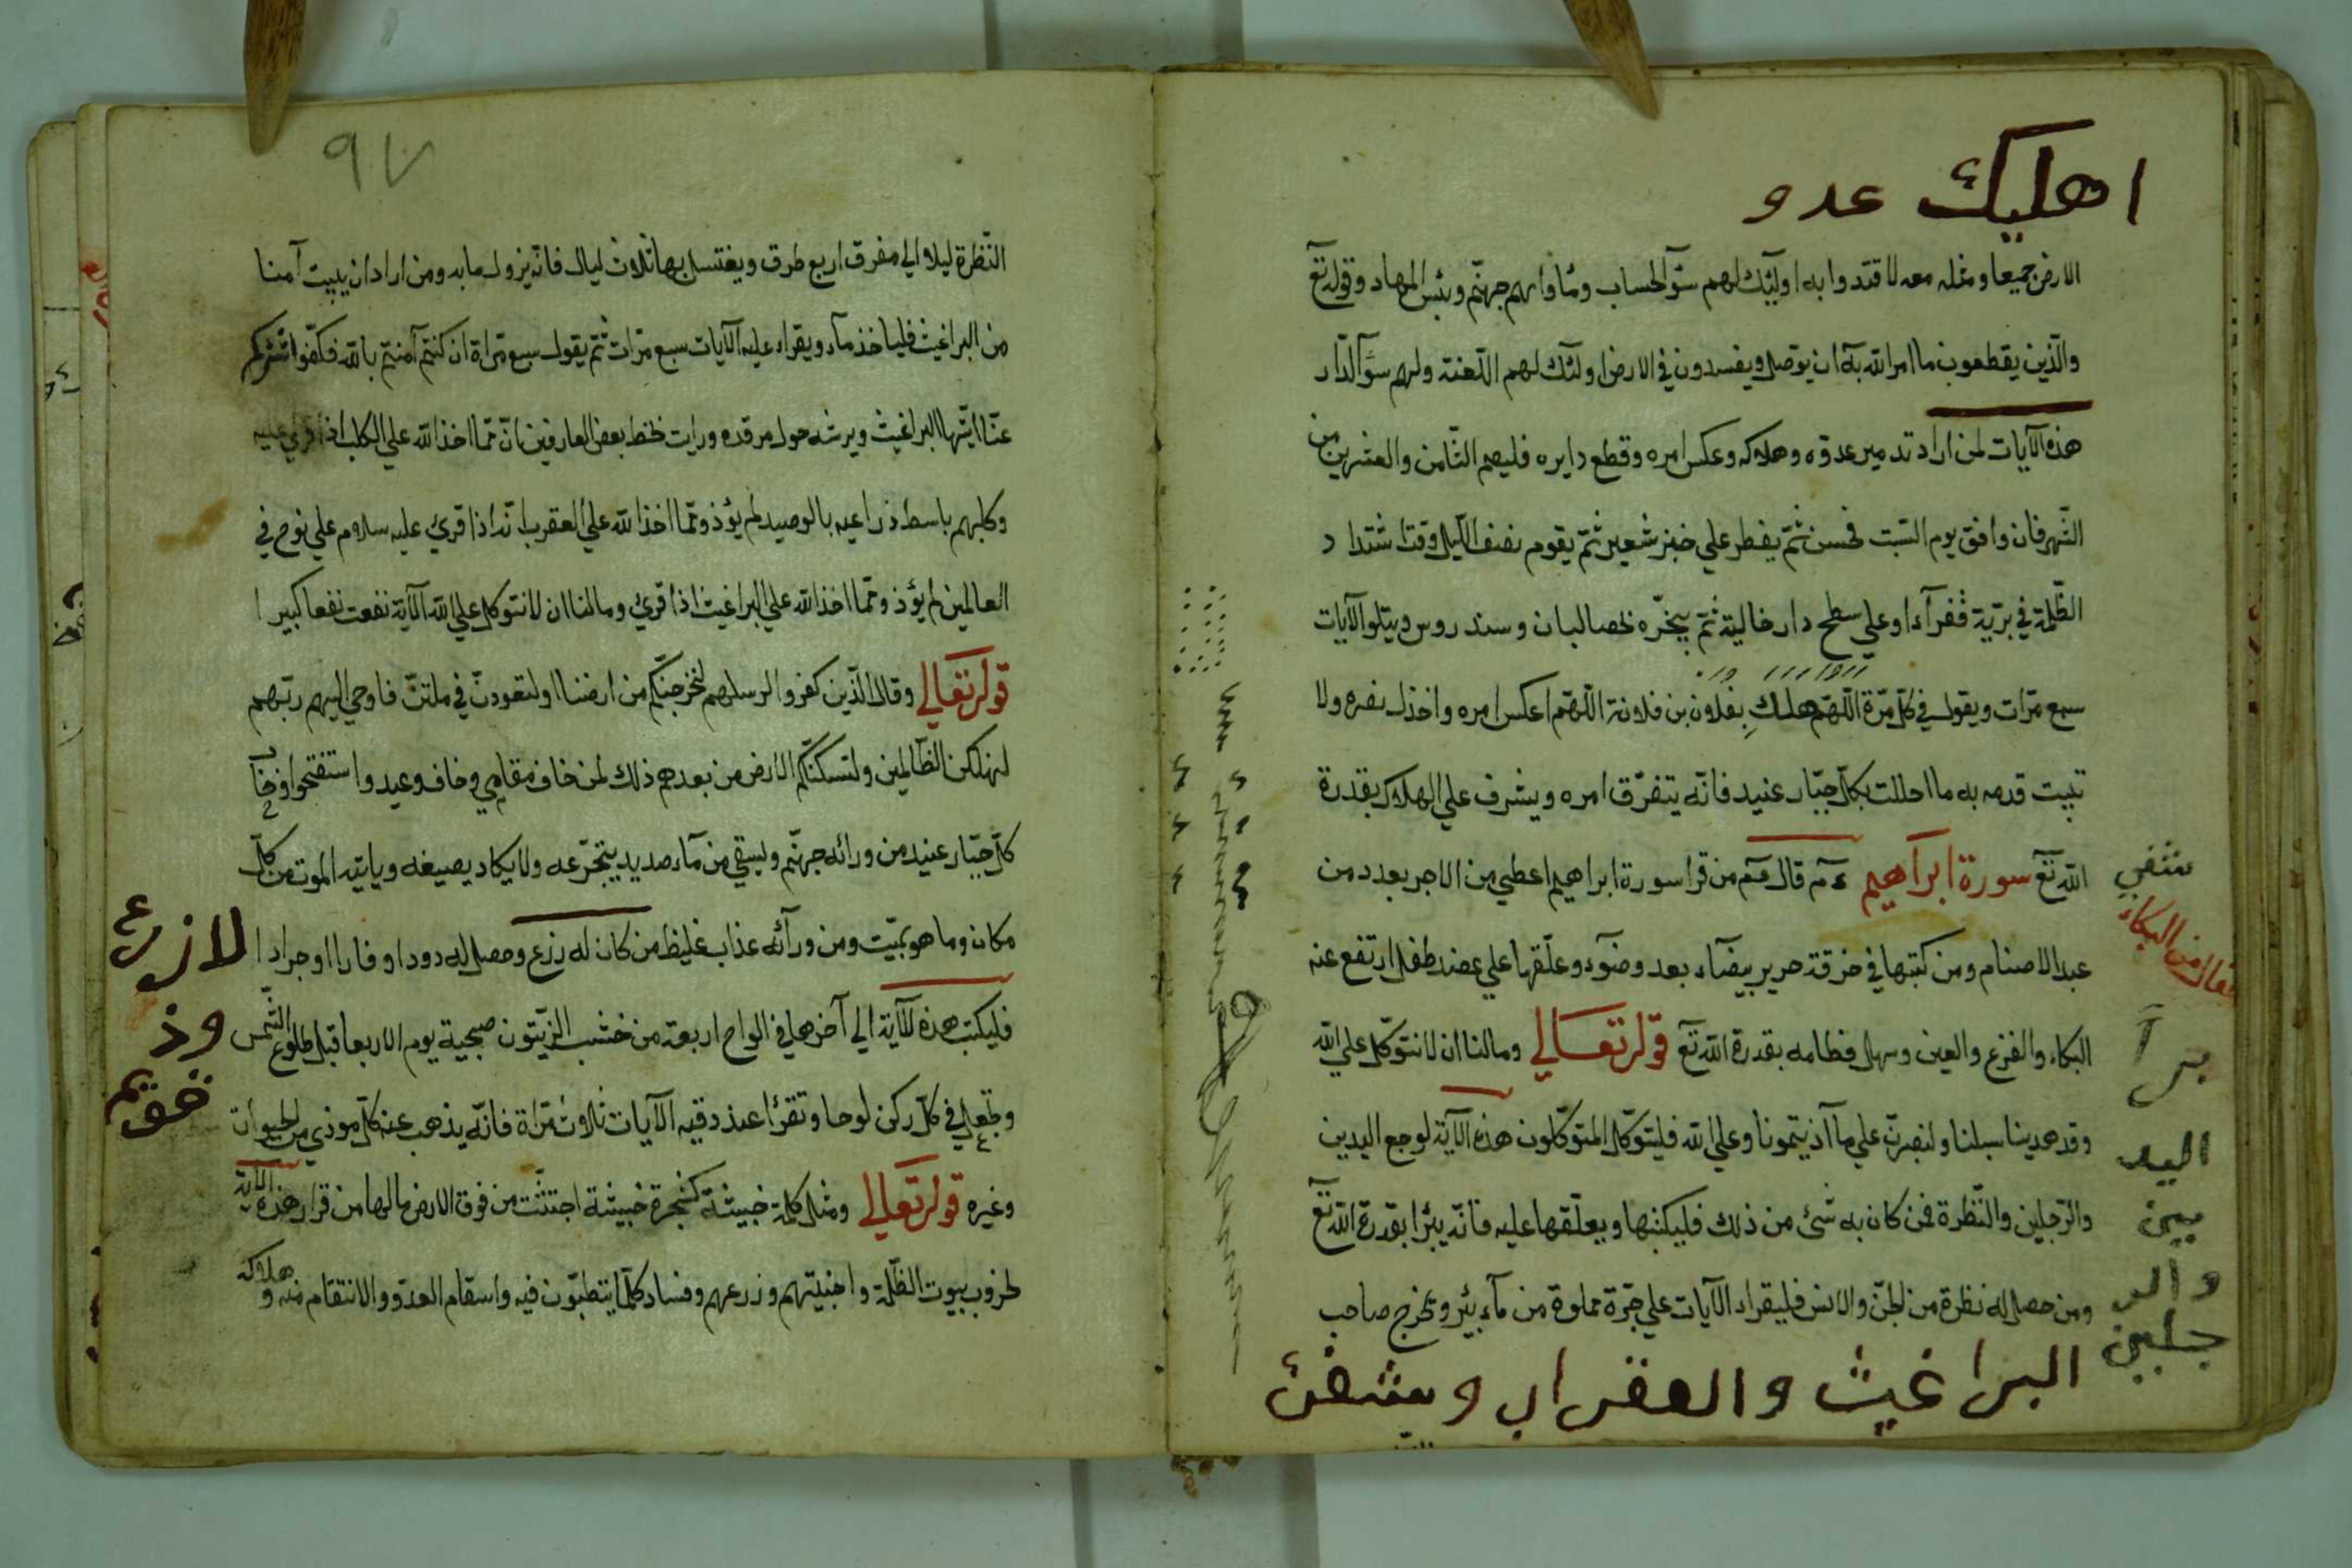 اهليك عدو
الارض جميعا ومثله معه لاقتدوا به اوليئك لهم سوٓ الحساب ومأواهم جهنّم وبئس المهاد وقوله تع
والّذين يقطعون ما امر الله به ان يوصل ويفسدون في الارض اولئك لهم اللّعنة ولهم سوٓ الدّار
هذه الآيات لمن اراد تدمير عدوّه وهلاكه وعكس امره وقطع دايره فليصم الثّامن والعشرين من
الشّهر فان وافق يوم السّبت فحسن ثمّ يفطر علي خبز شعير ثمّ يقوم نصف اللّيل وقتا شتداد
الظّلمة في برّية قفرآء او علي سطح دار خالية ثمّ يبخّره بحصالبان وسندروس ويتلو الآيات
سبع مرّات ويقول في كلّ مرّة اللّهمّ بفلان بن فلانة اللّهمّ اعكس امره واخذل نصره ولا
تبيت قدمه به ما احللت بكلّ جبّار عنيد فانّه يتفرّق امره ويشرف علي الهلاك بقدرة
الله تع سورة ابراهيم قال من قرا سورة ابراهيم اعطي من الاجر بعدد من
عبد الاصنام ومن كتبها في خرقة حرير بيضآء بعد وضوٓء وعلّقها علي عضد طفل ارتفع عنه
البكاء والفزع والعين وسهل فطامه بقدرة الله تع قوله تعالي ومالنا ان لا نتوكّل علي الله
وقد هدينا سبلنا ولنصبرنّ علي ما آذيتمونا وعلي الله فليتوكّل المتوكّلون هذه الآية لوجع اليدين
والرّجلين والنّظرة فمن كان به شئ من ذلك فليكتبها ويعلّقها عليه فانّه يبرا بقدرة الله تع
ومن حصل له نظرة من الجنّ والانس فليقراء الآيات علي جرّة مملوة من مآء بئر ويخرج صاحب
من البكاء
برآ
اليد
يين
والر
جلين
البراغيث والعقراب ومشفئ
٩٧
النّظرة ليلا الي مفرق اربع طرق ويغتسل بها ثلاث ليال فانّه يزول ما به ومن اراد ان يبيت آمنا
من البراغيث فلياخذ مآء ويقراء عليه الآيات سبع مرّات ثمّ يقول سبع مرّاة ان كنتم آمنتم بالله فكفّوا شركم
عنّا ايّتها البراغيث ويرشه حول مرقده ورايت بخط بعض العارفين انّ ممّا اخذ الله علي الكلب اذا قري عليه
وكلبهم باسط ذراعيه بالوصيد لم يؤذ وممّا اخذ الله علي العقرب انّه اذا قرئ عليه سلام علي نوح في
العالمين لم يؤذ وممّا اخذ الله علي البراغيث اذا قرئ ومالنا ان لا نتوكل علي الله الآية نفعت نفعا كبيرا
قوله تعالي وقال الّذين كفروا لرسلهم لنخرجنّكم من ارضنا او لتعودنّ في ملتنّ فاوحي اليهم ربّهم
لنهلكن الظّالمين ولنسكننّكم الارض من بعدهم ذلك لمن خاف مقامي وخاف وعيد واستفتحوا وخاب
كلّ جبّار عنيد من ورائه جهنّم ويسقي من مآء صديد يتجرّعه ولا يكاد يصيغه وياتيه الموت من كلّ
مكان وما هو بميّت ومن ورآئه عذاب غليظ من كان له زرع وحصل له دودا وفارا او جرادا
فليكتب هذه الآية الي آخرها في الواح اربعة من خشب الزّيتون صبحية يوم الاربعا قبل طلوع الشّمس
وتجعل في كلّ ركن لوحا وتقرا عند دقيه الآيات ثلاث مرّاة فانّه يذهب عنه كلّ موذي من الحيوات
وغيره قوله تعالي ومثل كلمة خبيثة كشجرة خبيثة اجتثّت من فوق الارض مالها من قرار هذه الآية
لخروب بيوت الظّلمة واخبيتهم وزرعهم وفساد كلّما يتطبّون فيه واسقام العدوّ والانتقام منه وهلاكه
لازرع